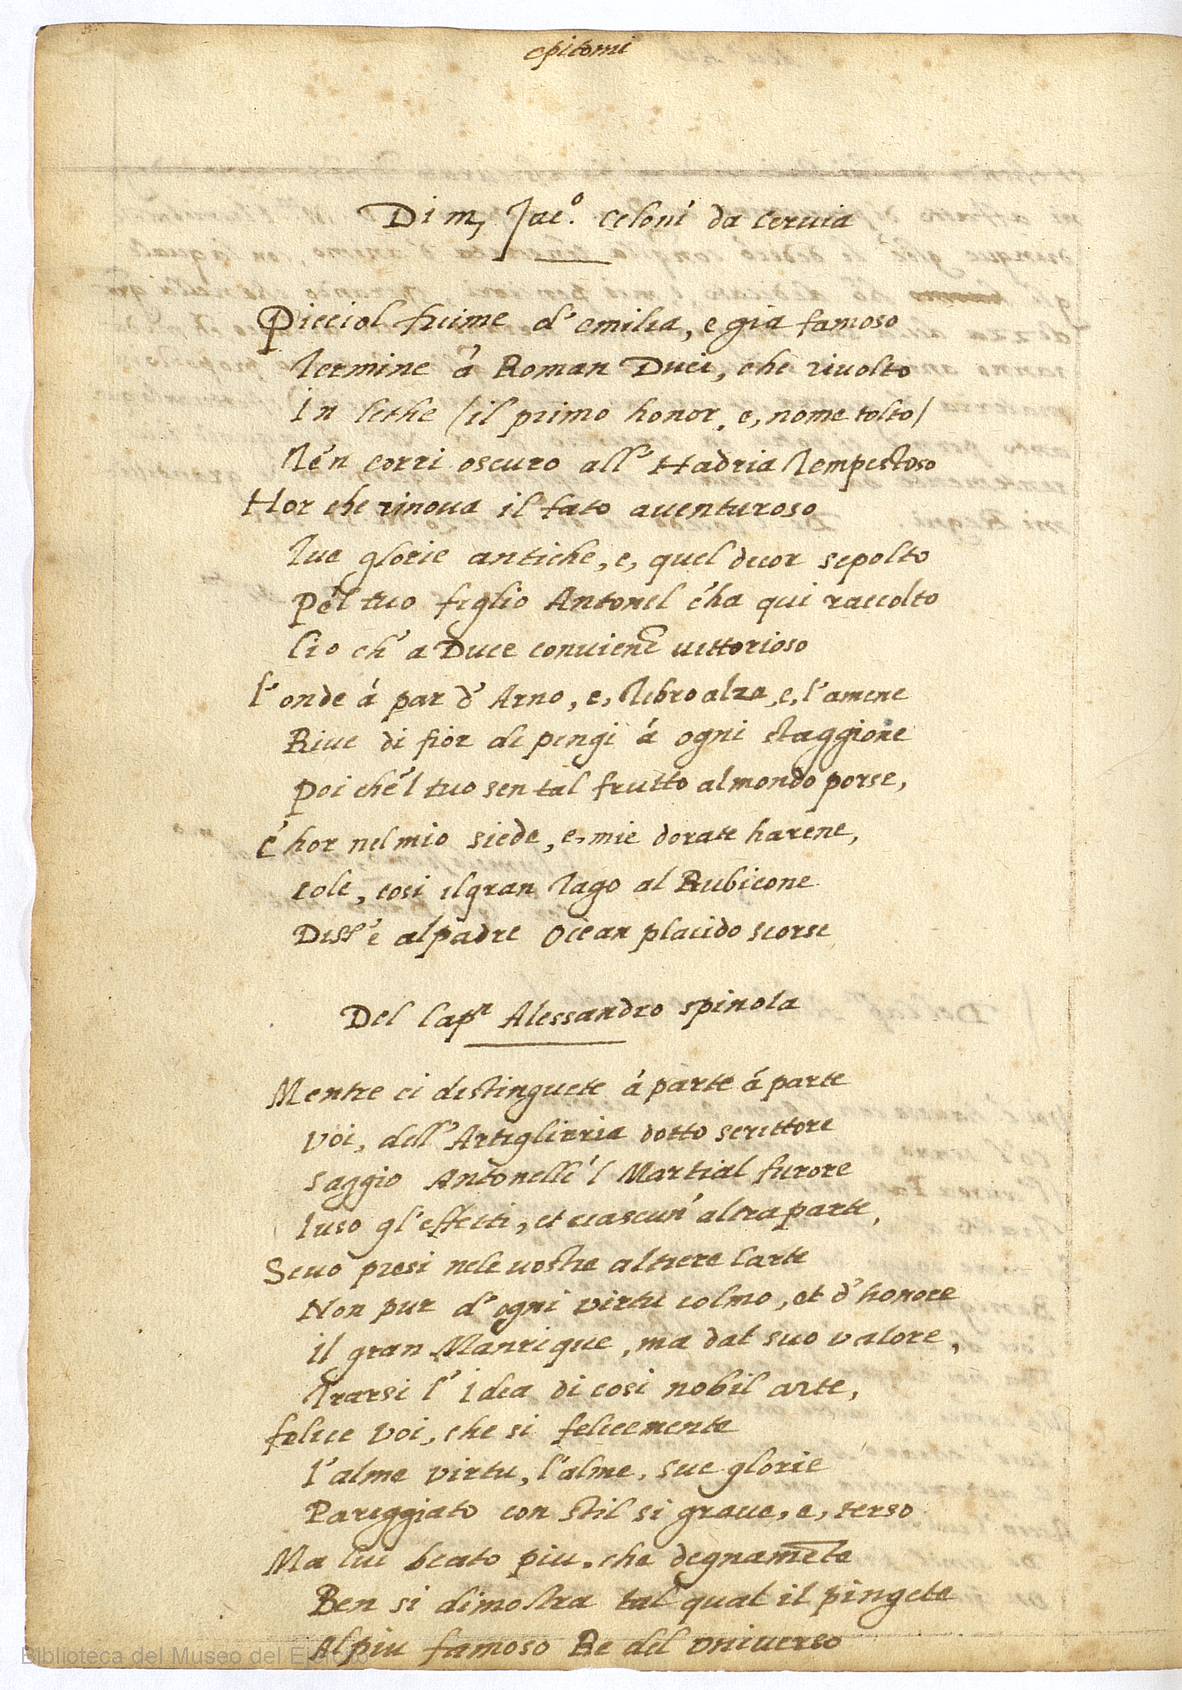 epitomi
Di m, Jac.º Celoni da Cervia
Picciol fiume d'emilia, e gia famoso
Termine á Roman Duci, che rivolto
In lethe (il primo honor, e, nome tolto)
Te'n corri oscuro all' Hadria Tempestoso
Hor che rinova il fato aventuroso
Tue glorie antiche, e, quel ducor sepolto
Pe'l tuo figlio Antonel c'ha qui raccolto
Cio ch' a Duce convienē vittorioso
L'onde á par d' Arno, e, Tebro alza, e, l'amene
Rive di fior dipengi á ogni staggione
Poi che'l tuo sen tal frutto al mondo porse,
E' hor nel mio siede, e, mie dorate harene,
cole, cosi il gran Tago al Rubicone
Diss' e al padre Ocean placido scorse
Del Capⁿ Alessandro spinola
Mentre ci distinguete á parte á parte
Voi, dell' Artiglieria dotto scrittore
Saggio Antonelli 'l Martial furore
l'uso gl'effetti, et ciascun' altra parte,
Scuo presi nele vostre altiere Carte
Non pur d' ogni virtù colmo, et d' honore
il gran Manrique, ma dal suo valore,
Trarsi l' idea di cosi nobil arte,
felice Voi, che si felicemente
l'alme virtu, l'alme, sue glorie
Pareggiato con stil si grave, e, terso
Ma lui beato piu, che degnamēte
Ben si dimostra tal qual il pingete
Al piu famoso Re del universo
Biblioteca del Museo del Ejército